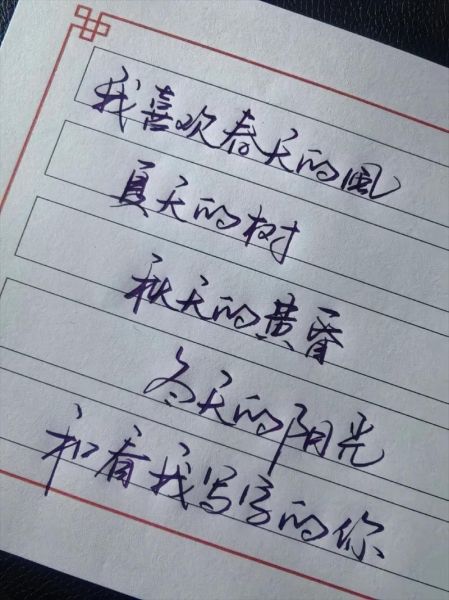 我喜欢春天的風
夏天的树
秋天的黄昏
冬天的阳光
和看我写字的你